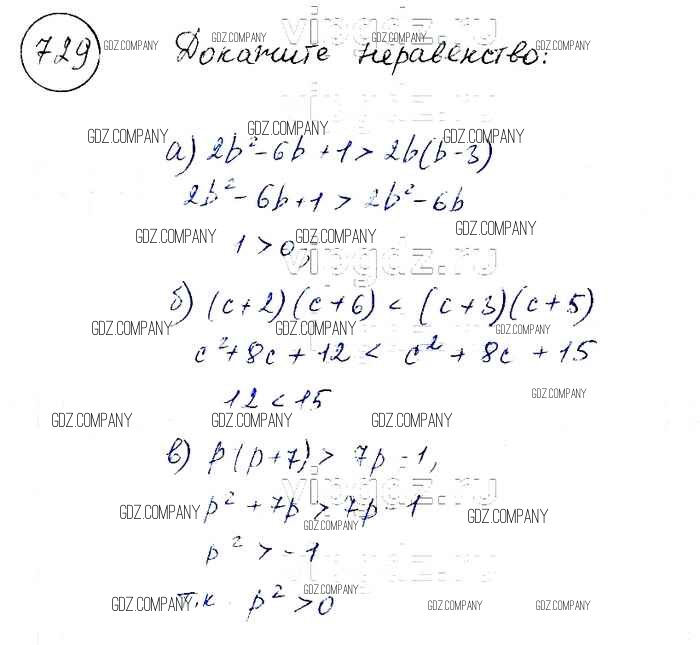 729 Докажите неравенство:
vipgdz.ru
GDZ.COMPANY GDZ.COMPANY GDZ.COMPANY GDZ.COMPANY
GDZ.COMPANY GDZ.COMPANY GDZ.COMPANY
а) 2b² - 6b + 1 > 2b(b - 3)
2b² - 6b + 1 > 2b² - 6b
GDZ.COMPANY GDZ.COMPANY GDZ.COMPANY
1 > 0,
vipgdz.ru
б) (c + 2)(c + 6) < (c + 3)(c + 5)
GDZ.COMPANY GDZ.COMPANY GDZ.COMPANY
c² + 8c + 12 < c² + 8c + 15
12 < 15 GDZ.COMPANY
GDZ.COMPANY GDZ.COMPANY GDZ.COMPANY
в) p(p + 7) > 7p - 1,
vipgdz.ru
p² + 7p > 7p - 1
GDZ.COMPANY GDZ.COMPANY GDZ.COMPANY
p² > -1
vipgdz.ru
т.к. p² > 0
GDZ.COMPANY GDZ.COMPANY GDZ.COMPANY GDZ.COMPANY